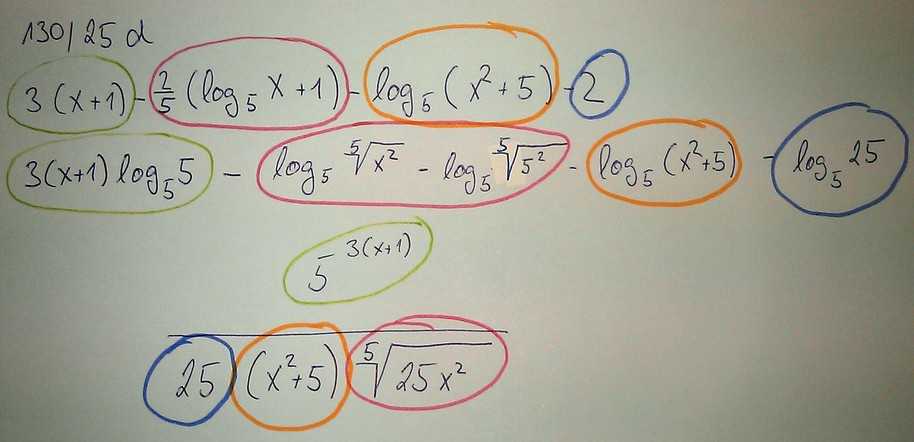 130/25 d
3(x+1) - 2/5 (log₅ x + 1) - log₅ (x² + 5) - 2
3(x+1) log₅ 5 - log₅ ⁵√x² - log₅ ⁵√5² - log₅ (x²+5) - log₅ 25
5^3(x+1)
25 (x²+5) ⁵√25x²